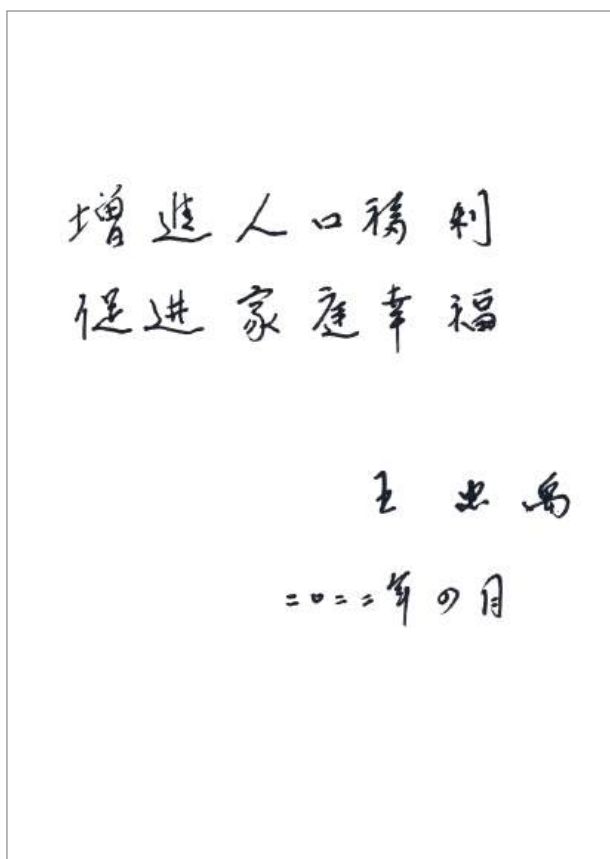 增進人口福利
促进家庭幸福
王忠禹
二〇二二年四月